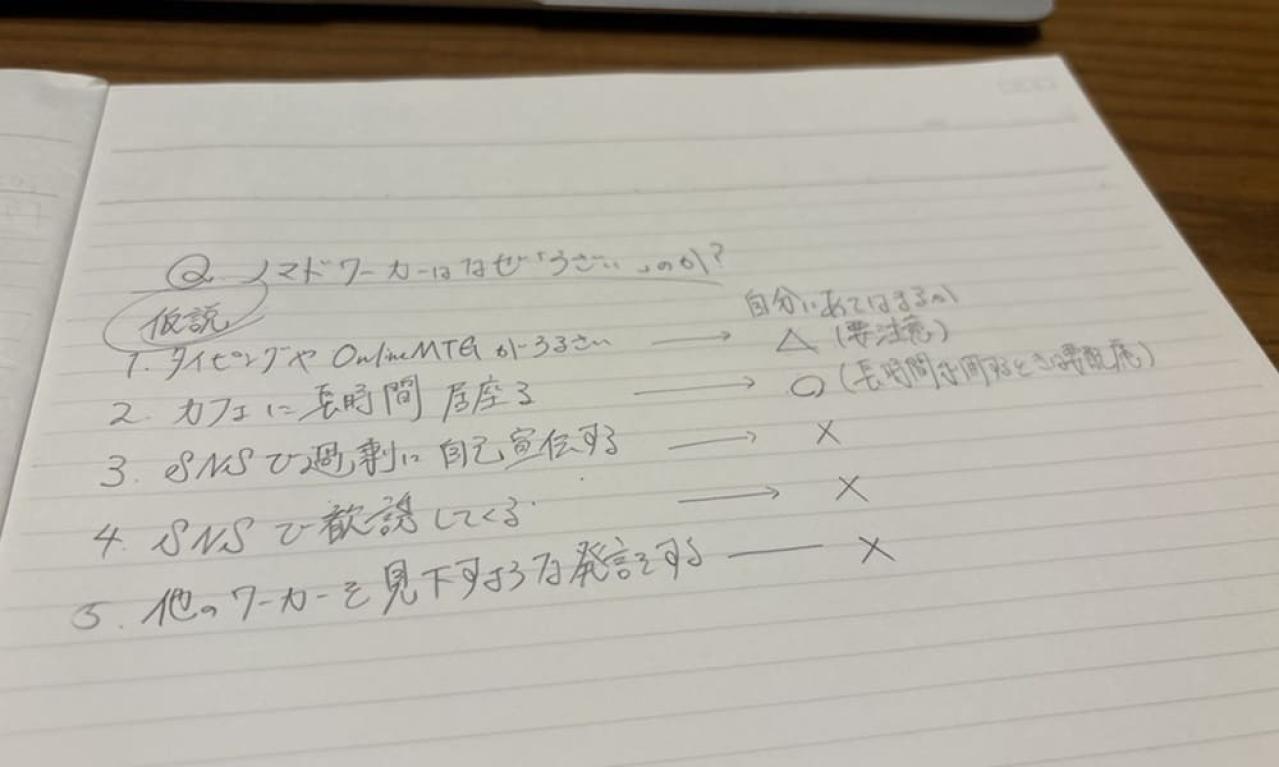 Q. ノマドワーカーはなぜ「うさい」のか?
仮説
自分にあてはまるか
1. タイピングや OnlineMTG がうるさい → △ (要注意)
2. カフェに長時間 居座る → ○ (長時間利用するときは要配慮)
3. SNSで過剰に自己宣伝する → ×
4. SNSで歓誘してくる → ×
5. 他のワーカーを見下すような発言をする — ×